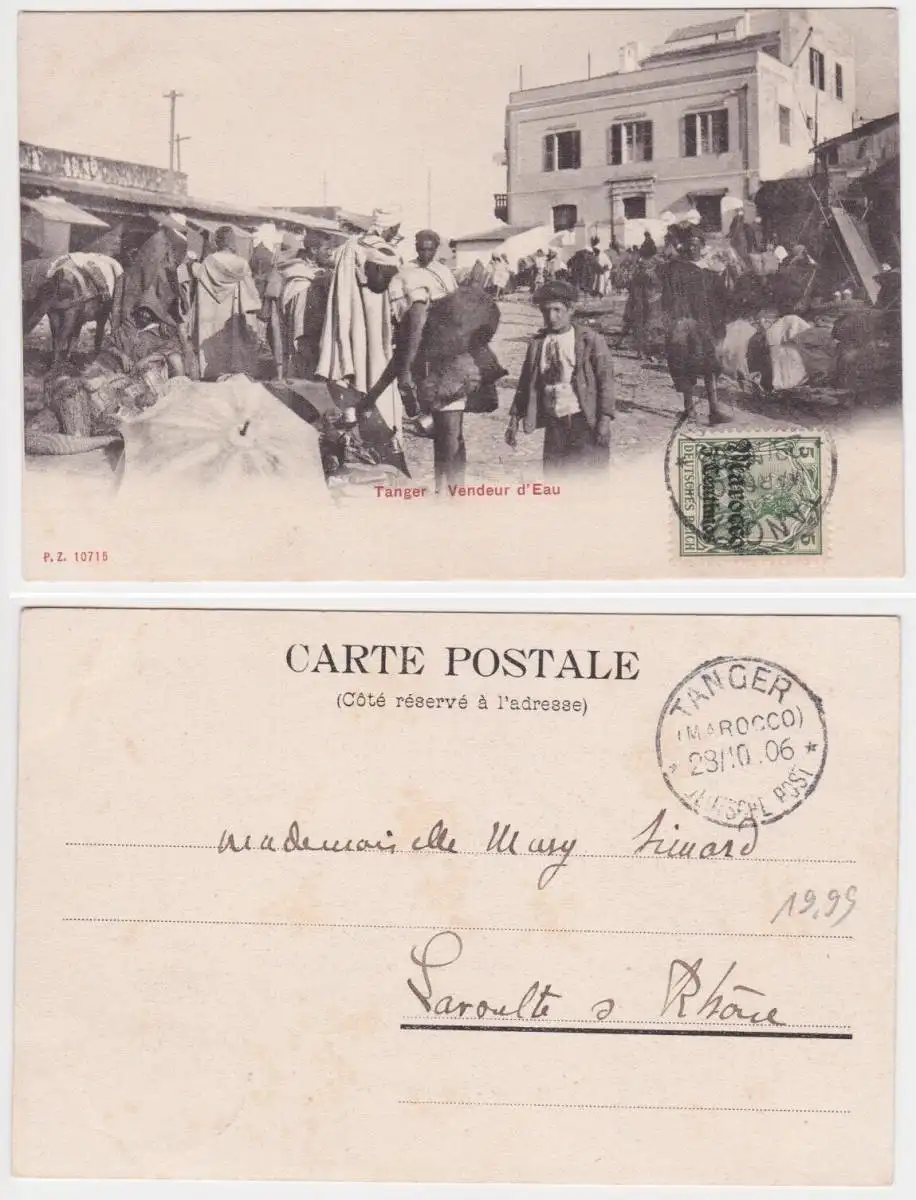 Tanger - Vendeur d'Eau
P.Z. 10715
5 5
DEUTSCHES REICH
Marocco
5 Centimos
CARTE POSTALE
(Côté réservé à l'adresse)
TANGER
(MAROCCO)
28/10.06
* DEUTSCHE POST *
Mademoiselle Mary Simard
19,99
Lavoulte s Rhône